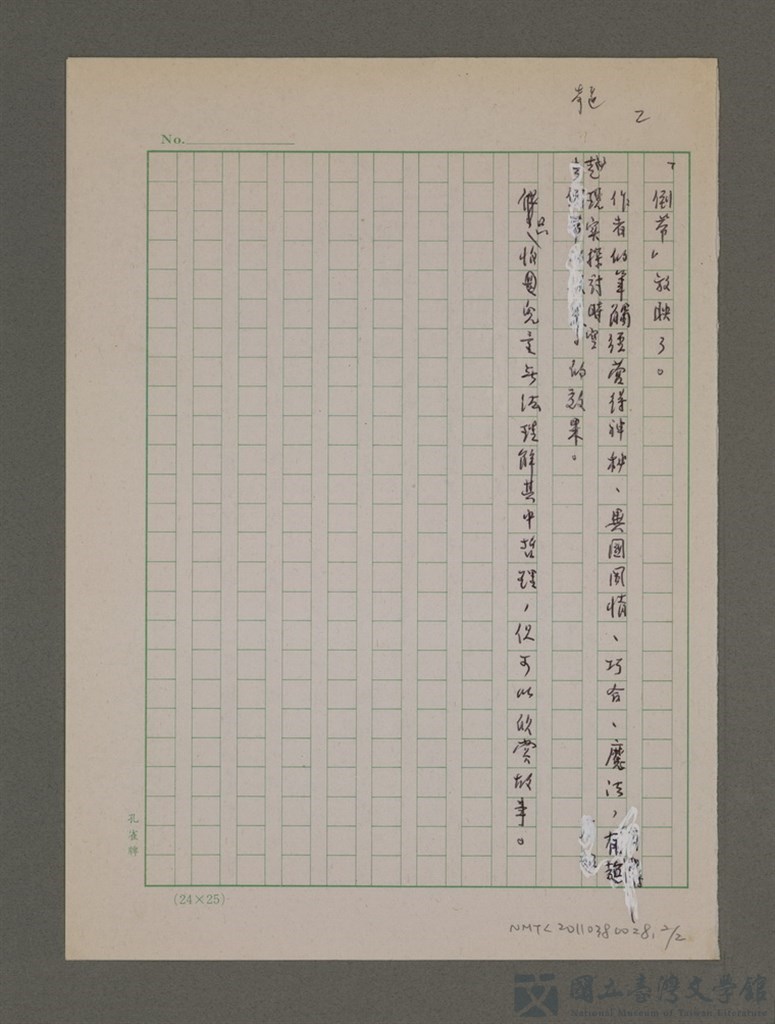 2
No.
「倒帶」放映了。
作者的筆觸經營得神秘、異國風情、巧合、魔法,有超
越現实探討時空的效果。
恐怕囡兒童無法理解其中哲理,但可以欣賞故事。
孔雀牌
(24×25)
NMTL20110380028,2/2
國立臺灣文學館
National Museum of Taiwan Literature